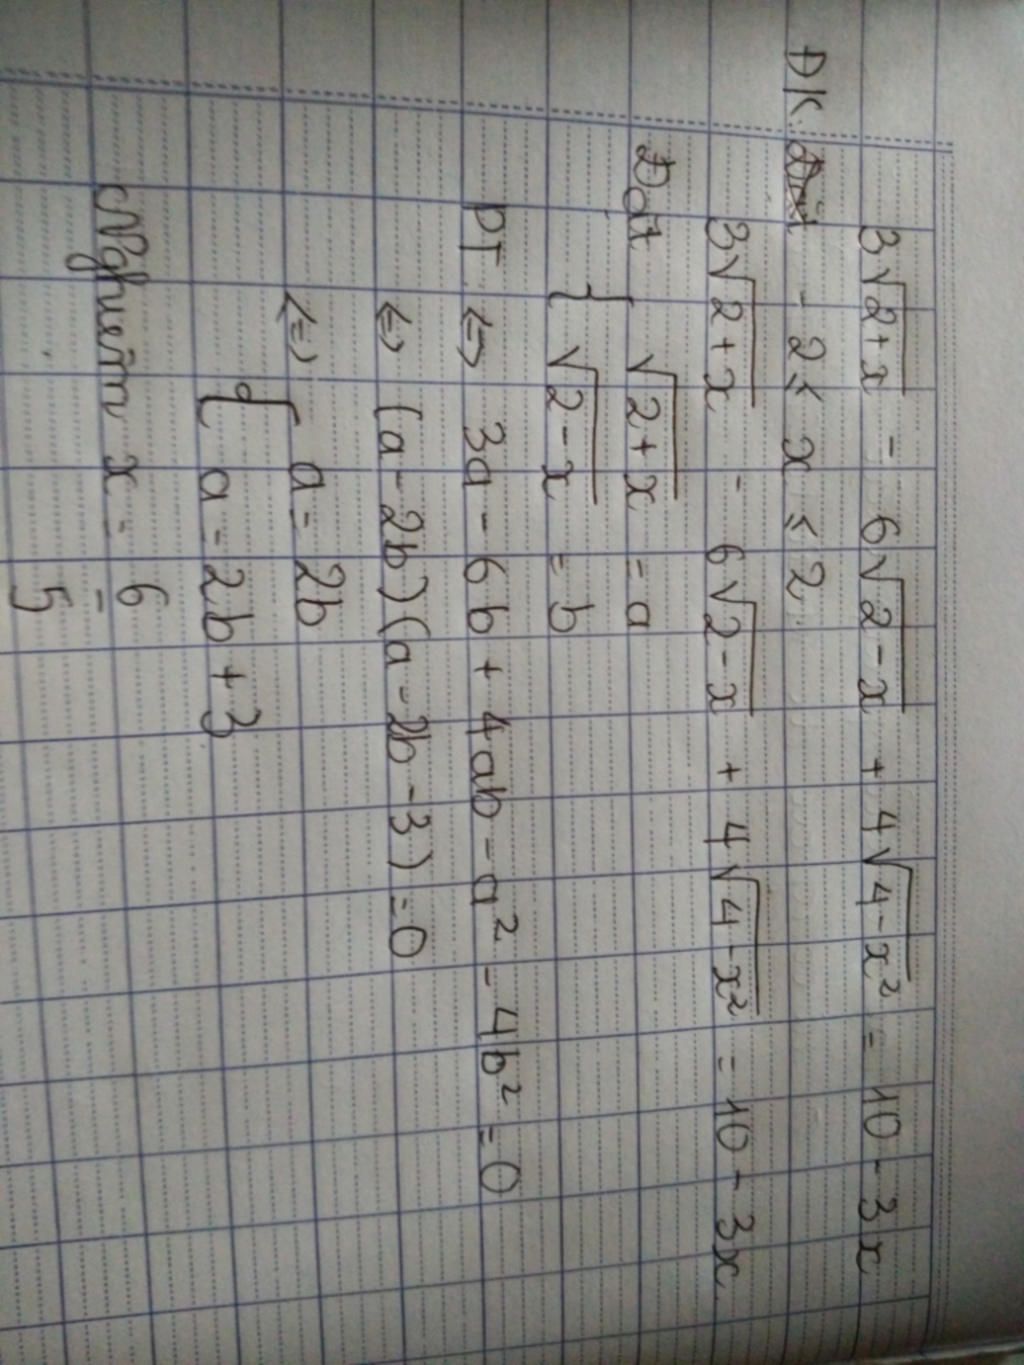 3√2+x - 6√2-x + 4√4-x² = 10 - 3x
ĐK: - 2 ≤ x ≤ 2
3√2+x - 6√2-x + 4√4-x² = 10 - 3x
Đặt { √2+x = a
√2-x = b
PT ⇔ 3a - 6b + 4ab - a² - 4b² = 0
⇔ (a - 2b)(a - 2b - 3) = 0
⇔ [ a = 2b
a = 2b + 3
Nghiệm x = 6/5